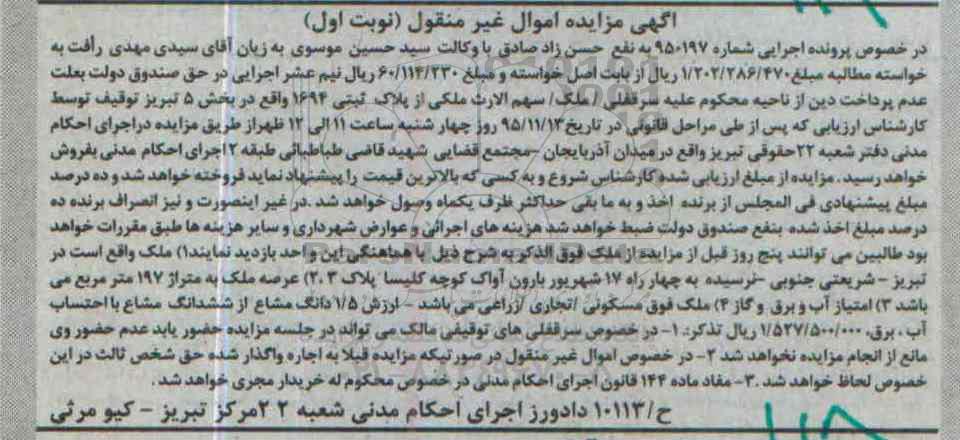 آگهی مزایده اموال غیر منقول (نوبت اول)
در خصوص پرونده اجرایی شماره ۹۵۰۱۹۷ به نفع حسن زاد صادق با وکالت سید حسین موسوی به زیان آقای سیدی مهدی رأفت به
خواسته مطالبه مبلغ ۱/۲۰۲/۲۸۶/۴۷۰ ریال از بابت اصل خواسته و مبلغ ۶۰/۱۱۴/۳۳۰ ریال نیم عشر اجرایی در حق صندوق دولت بعلت
عدم پرداخت دین از ناحیه محکوم علیه سرقفلی / ملک/ سهم الارث ملکی از پلاک ثبتی ۱۶۹۴ واقع در بخش ۵ تبریز توقیف توسط
کارشناس ارزیابی که پس از طی مراحل قانونی در تاریخ ۹۵/۱۱/۱۳ روز چهار شنبه ساعت ۱۱ الی ۱۲ ظهر از طریق مزایده دراجرای احکام
مدنی دفتر شعبه ۲۲حقوقی تبریز واقع در میدان آذربایجان –مجتمع قضایی شهید قاضی طباطبائی طبقه ۲ اجرای احکام مدنی بفروش
خواهد رسید . مزایده از مبلغ ارزیابی شده کارشناس شروع و به کسی که بالاترین قیمت را پیشنهاد نماید فروخته خواهد شد و ده درصد
مبلغ پیشنهادی فی المجلس از برنده اخذ و به ما بقی حداکثر ظرف یکماه وصول خواهد شد .در غیر اینصورت و نیز انصراف برنده ده
درصد مبلغ اخذ شده بنفع صندوق دولت ضبط خواهد شد هزینه های اجرائی و عوارض شهرداری و سایر هزینه ها طبق مقررات خواهد
بود طالبین می توانند پنج روز قبل از مزایده از ملک فوق الذکر به شرح ذیل با هماهنگی این واحد بازدید نمایند۱) ملک واقع است در
تبریز – شریعتی جنوبی –نرسیده به چهار راه ۱۷ شهریور بارون آواک کوچه کلیسا پلاک ۳ ۲۰) عرصه ملک به متراژ ۱۹۷ متر مربع می
باشد ۳) امتیاز آب و برق و گاز ۴) ملک فوق مسکونی /تجاری /زراعی می باشد – ارزش ۱/۵ دانگ مشاع از ششدانگ مشاع با احتساب
آب ، برق، ۱/۵۲۷/۵۰۰/۰۰۰ ریال تذکر: ۱- در خصوص سرقفلی های توقیفی مالک می تواند در جلسه مزایده حضور یابد عدم حضور وی
مانع از انجام مزایده نخواهد شد ۲- در خصوص اموال غیر منقول در صورتیکه مزایده قبلا به اجاره واگذار شده حق شخص ثالث در این
خصوص لحاظ خواهد شد .۳- مفاد ماده ۱۴۴ قانون اجرای احکام مدنی در خصوص محکوم له خریدار مجری خواهد شد .
ح/۱۰۱۱۳ دادورز اجرای احکام مدنی شعبه ۲ ۲مرکز تبریز - کیو مرثی